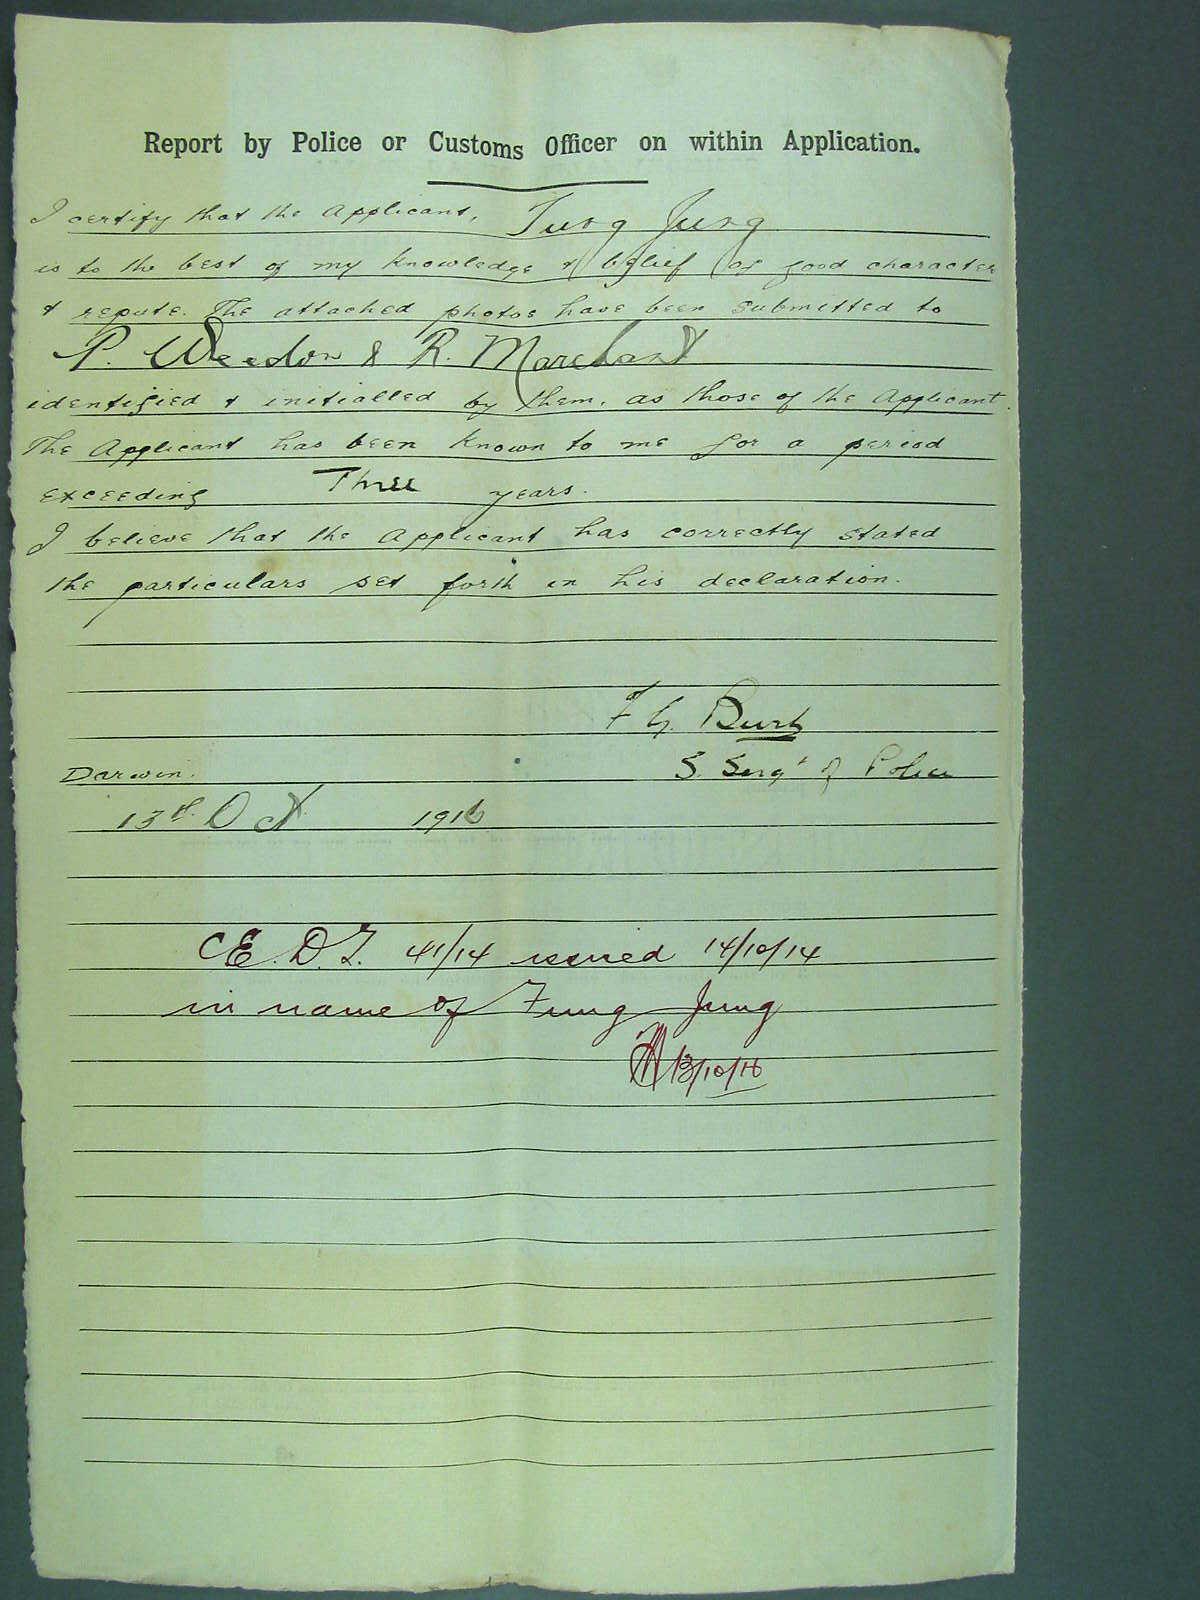 Report by Police or Customs Officer on within Application.
I certify that the Applicant, Fung Jung
is to the best of my knowledge & belief of good character
& repute. The attached photos have been submitted to
P. Weedon & R. Marchant
identified & initialled by them, as those of the Applicant.
The Applicant has been known to me for a period
exceeding Three years.
I believe that the Applicant has correctly stated
the particulars set forth in his declaration.
F G Burt
S. Sergt of Police
Darwin.
13th Oct 1916
C.E.D.T. 41/14 issued 14/10/14
in name of Fung Jung
13/10/16